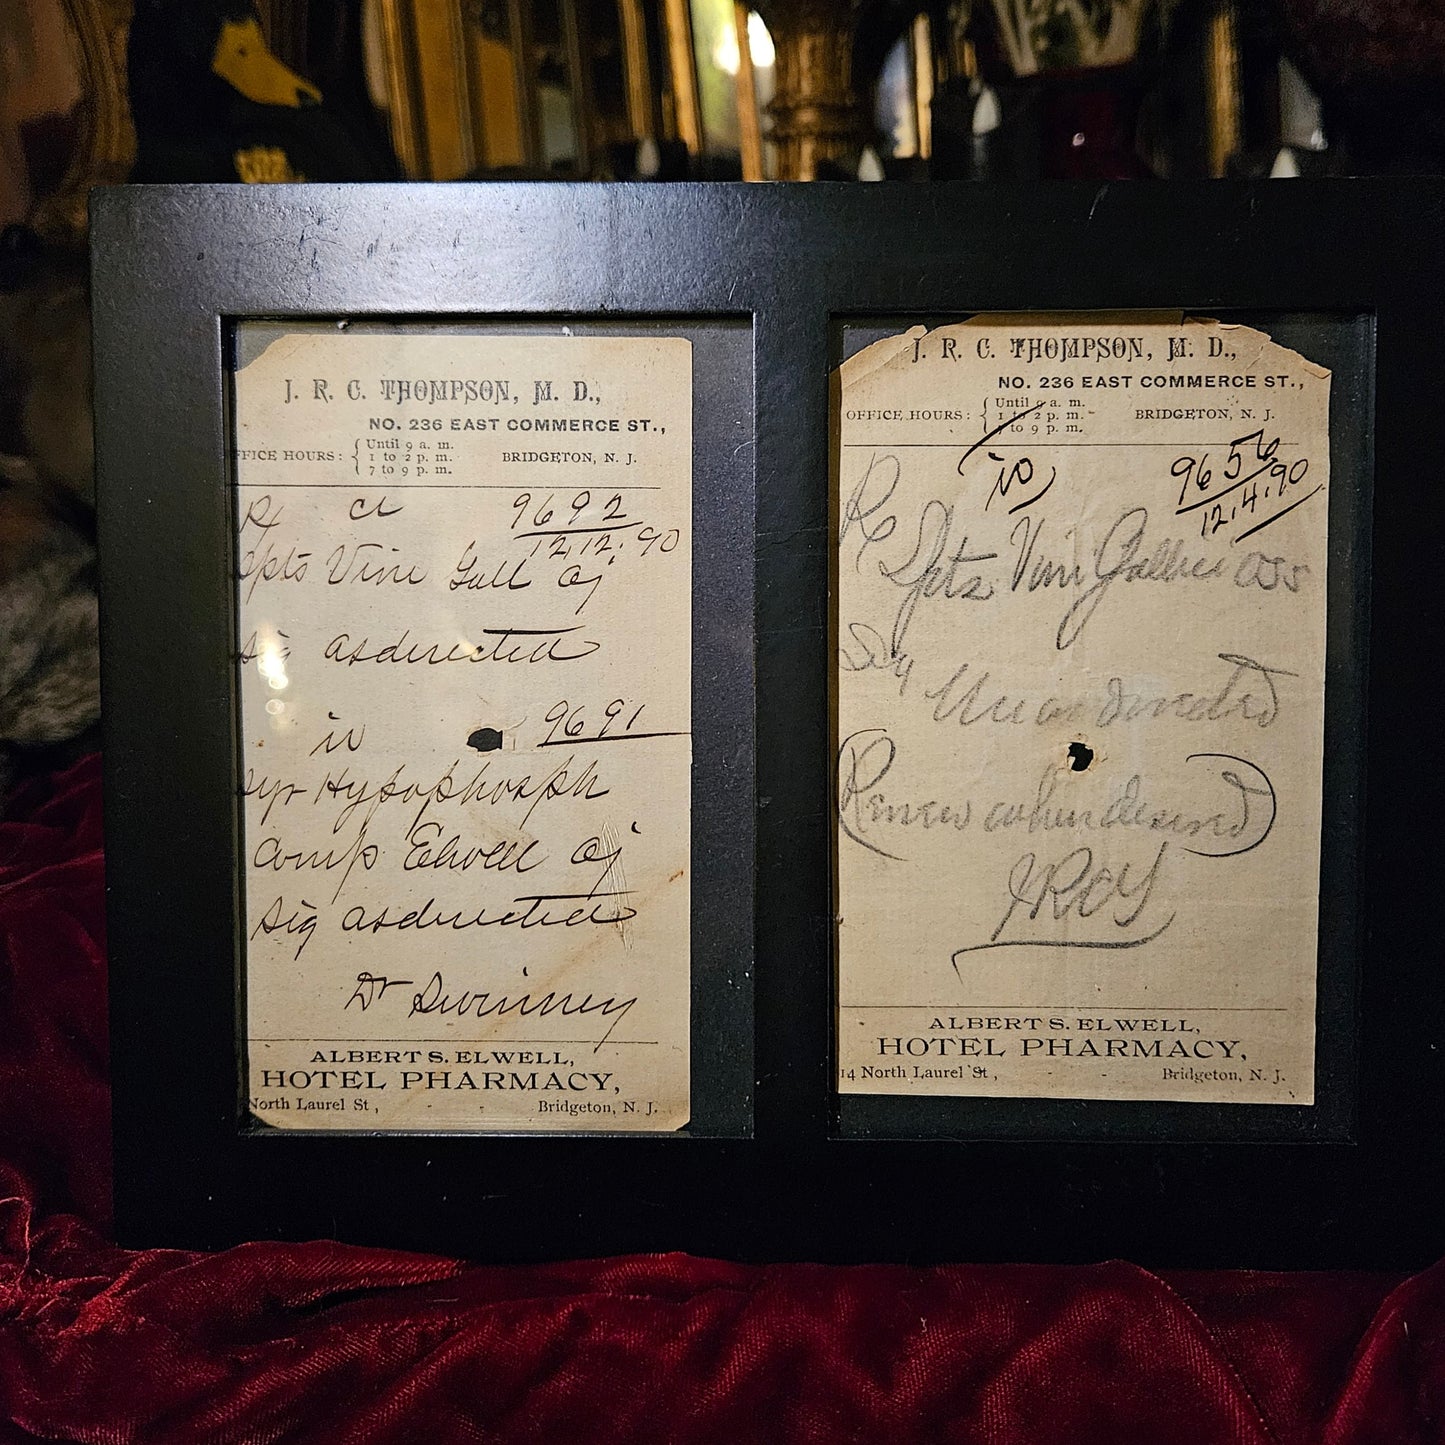 J. R. C. THOMPSON, M. D.,
NO. 236 EAST COMMERCE ST.,
FFICE HOURS: { Until 9 a. m.
1 to 2 p. m.
7 to 9 p. m.
BRIDGETON, N. J.
Rx
9692
12,12,90
Vini Gall
Sig as directed
9691
Syr Hypophosph
Comp Elwell
Sig as directed
Dr Swinney
ALBERT S. ELWELL,
HOTEL PHARMACY,
North Laurel St, - - Bridgeton, N. J.
J. R. C. THOMPSON, M. D.,
NO. 236 EAST COMMERCE ST.,
OFFICE HOURS: { Until 9 a. m.
1 to 2 p. m.
7 to 9 p. m.
BRIDGETON, N. J.
9656
12.4.90
Rx
Vini Gallici
Sig
Use as directed
(Renew when desired)
ALBERT S. ELWELL,
HOTEL PHARMACY,
14 North Laurel St, - - Bridgeton, N. J.